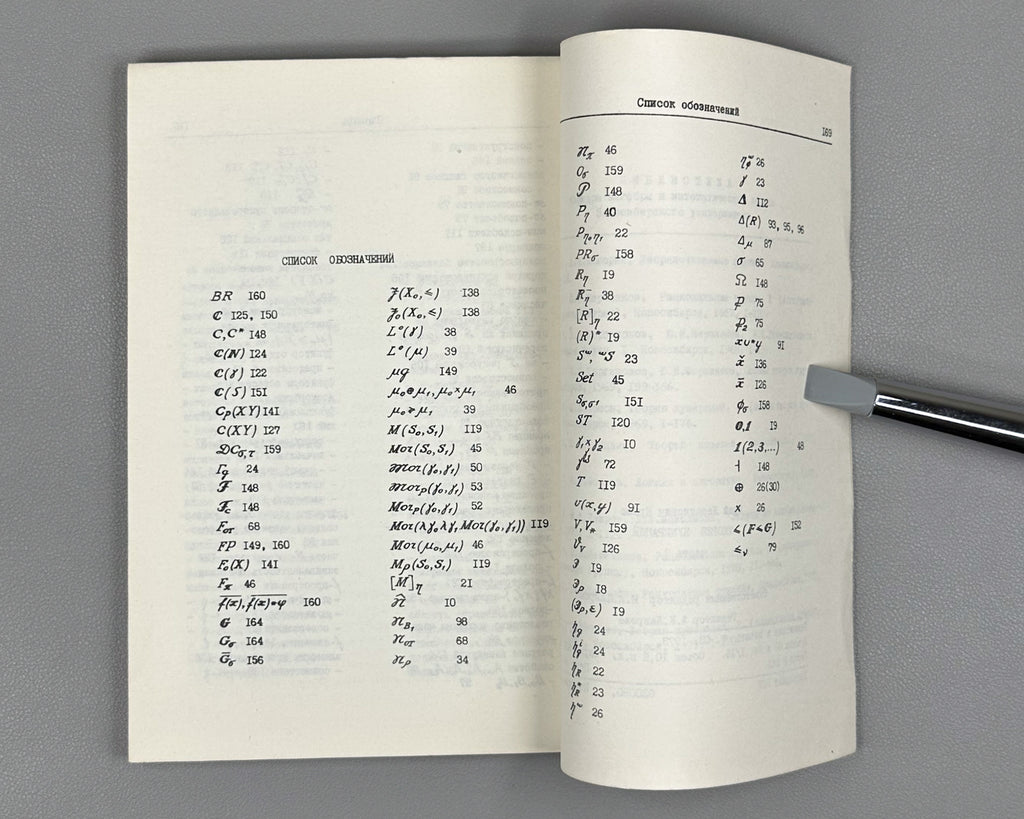 СПИСОК ОБОЗНАЧЕНИЙ
BR 160
C 125, 150
C, C* 148
C(N) 124
C(γ) 122
C(S) 151
Cρ(XY) 141
C(XY) 127
𝒟C_σ,τ 159
Γ_g 24
ℱ 148
ℱ_c 148
F_от 68
FP 149, 160
F₀(X) 141
F_π 46
160
G 164
G_σ 164
G̅_σ 156
(X₀,≤) 138
₀(X₀,≤) 138
L°(γ) 38
L°(μ) 39
μg 149
μ₀⊕μ₁, μ₀×μ₁ 46
39
M(S₀,S₁) 119
Mor(S₀,S₁) 45
𝔐or(γ₀,γ₁) 50
𝔐orρ(γ₀,γ₁) 53
Morρ(γ₀,γ₁) 52
Mor(λγ₀λγ₁Mor(γ₀,γ₁)) 119
Mor(μ₀,μ₁) 46
Mρ(S₀,S₁) 119
[M]_η 21
10
n_B₁ 98
n_от 68
n_ρ 34
Список обозначений 169
n_π 46
O_σ 159
𝒫 148
P_η 40
P_η∘η₁ 22
PR_σ 158
R_η 19
R_η⁻ 38
[R]_η 22
(R)* 19
Sʷ, ʷS 23
Set 45
S_σ,σ¹ 151
ST 120
γ₁×γ₂ 10
72
T 119
υ(x,y) 91
V, V* 159
ϑ_V 126
Э 19
Э_ρ 18
(Э_ρ, ε) 19
η_g 24
η_g^i 24
η_R 22
η_R* 23
ηʷ 26
26
γ 23
Δ 112
Δ(R) 93, 95, 96
Δ_μ 87
σ 65
Ω 148
p 75
p₂ 75
x∪*y 91
x̌ 136
x̄ 126
ϕ_σ 158
0,1 19
1(2,3,...) 48
⊣ 148
⊕ 26(30)
× 26
≤(F≤G) 152
≤_ν 79